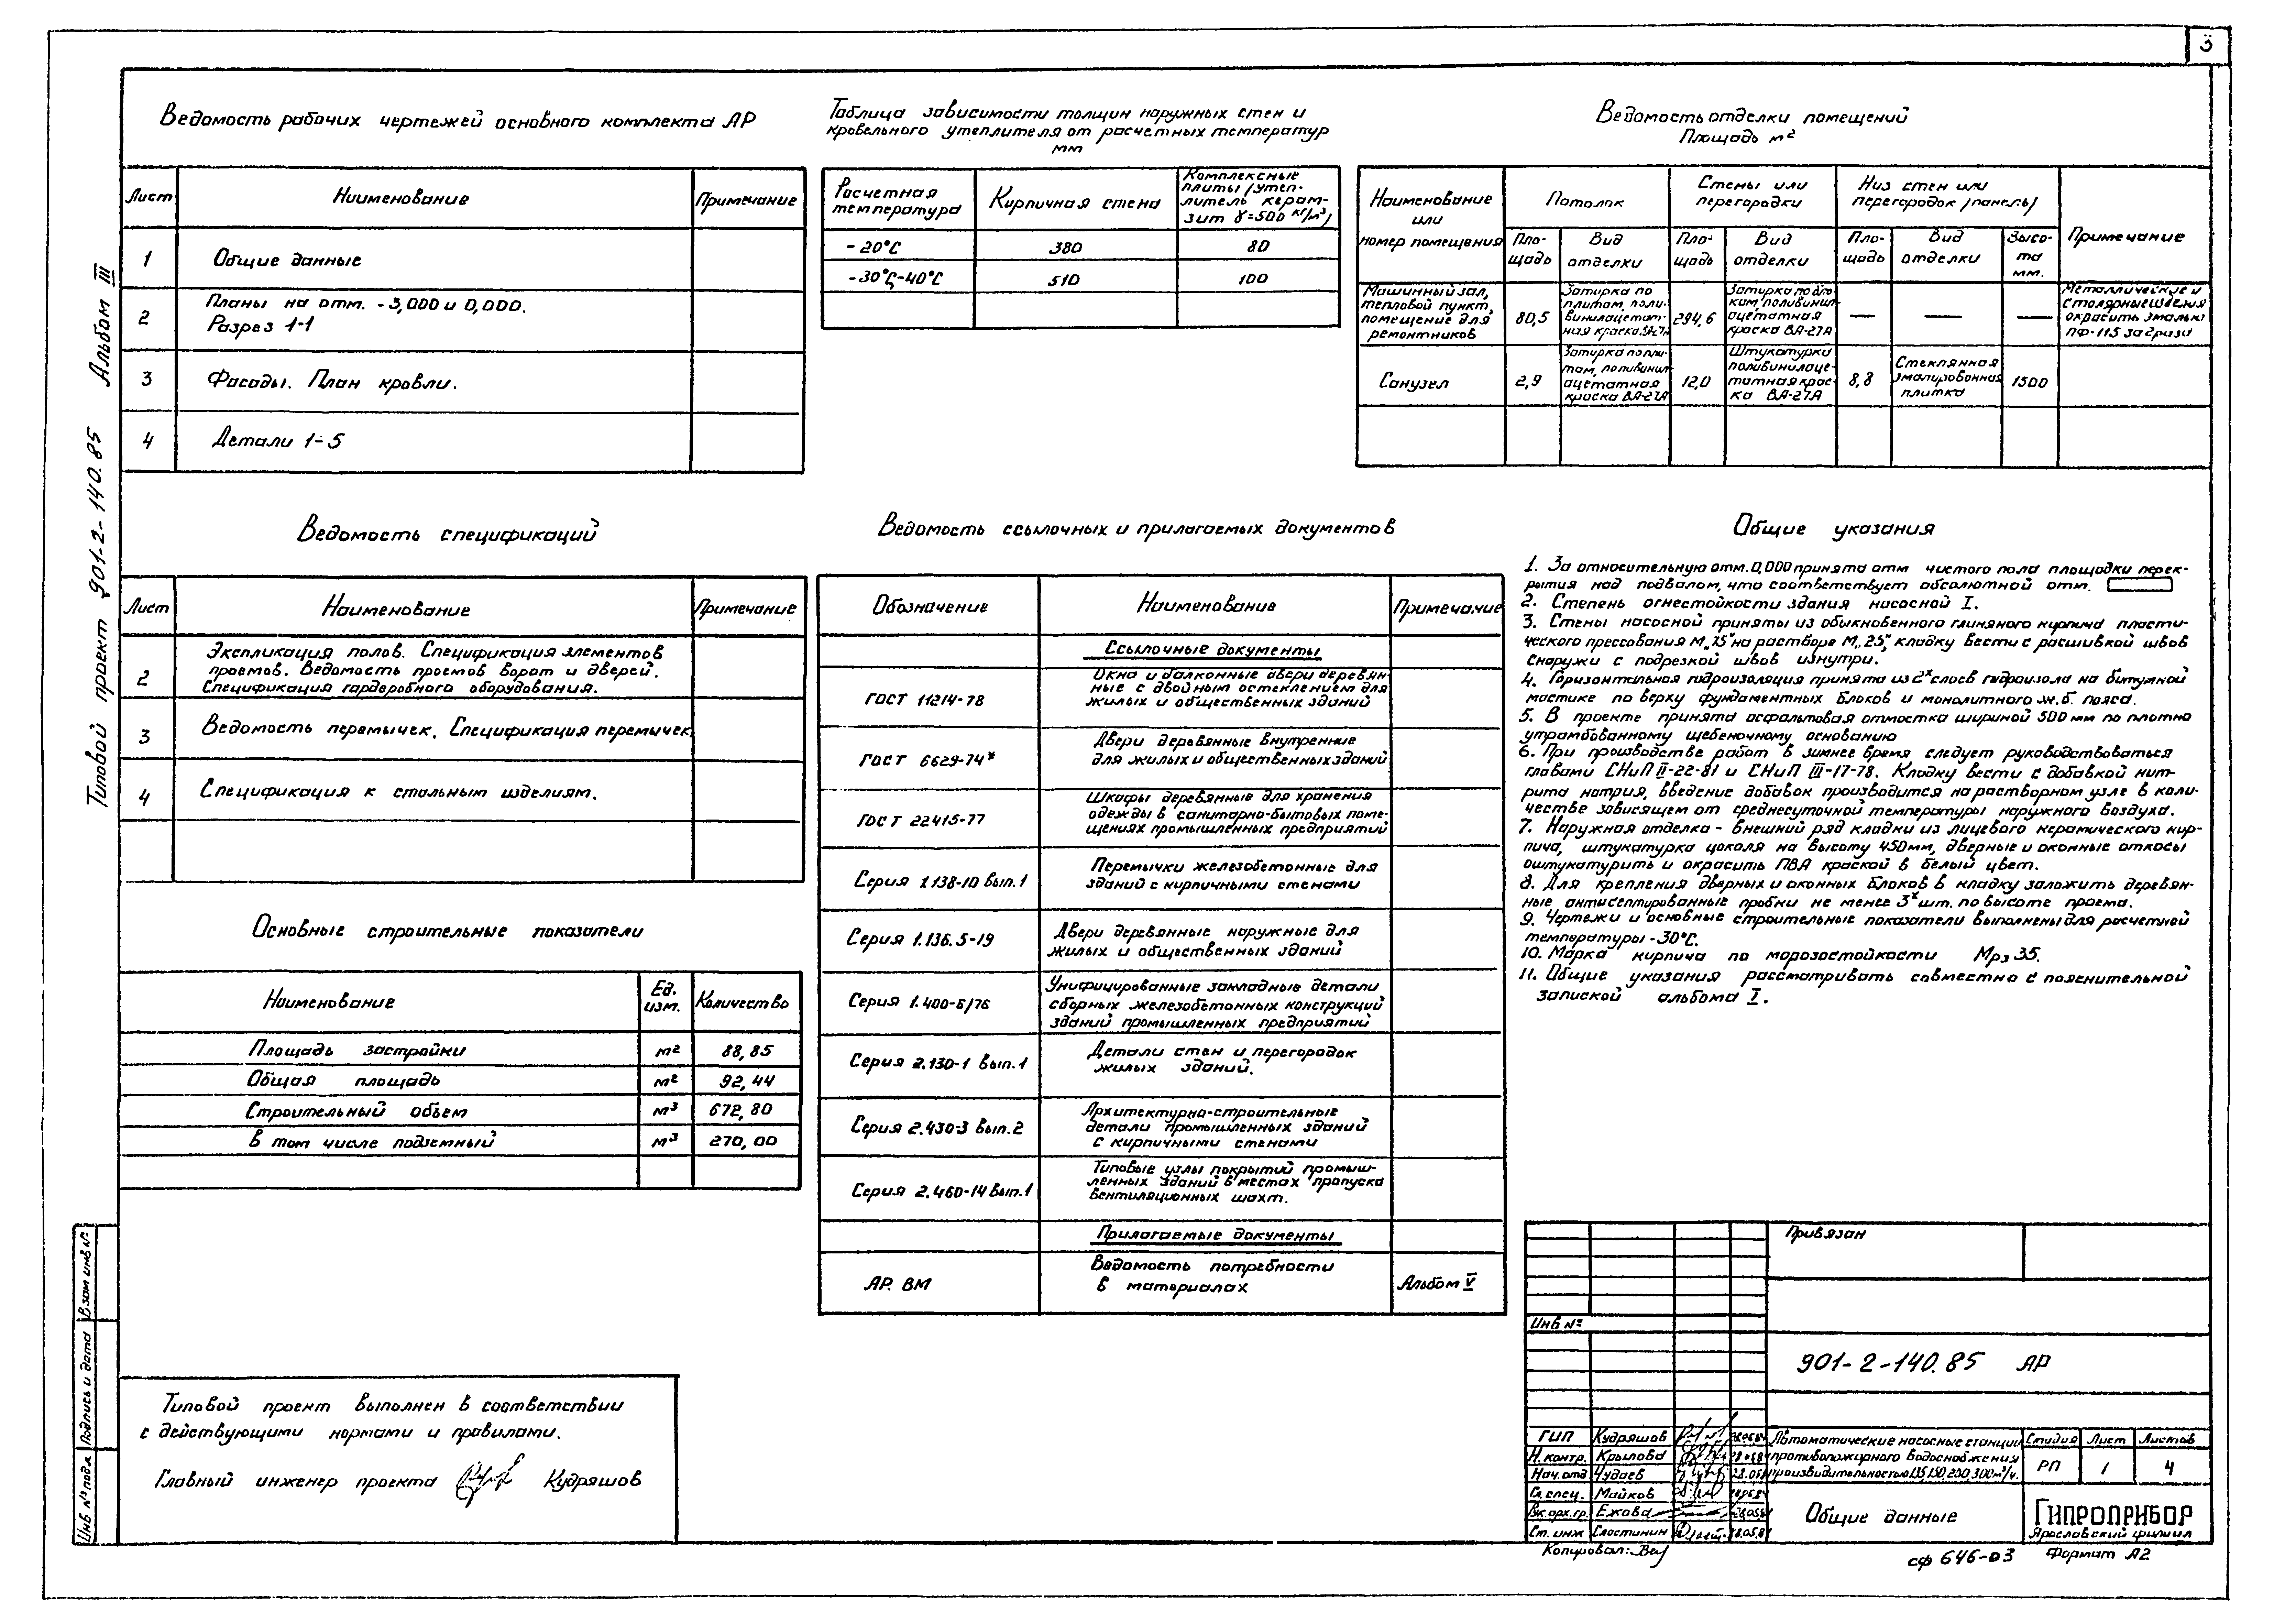 3
Ведомость рабочих чертежей основного комплекта АР
Лист
Наименование
Примечание
1
Общие данные
2
Планы на отм. -3,000 и 0,000.
Разрез 1-1
3
Фасады. План кровли.
4
Детали 1÷5
Таблица зависимости толщин наружных стен и
кровельного утеплителя от расчетных температур
мм
Расчетная
температура
Кирпичная стена
Комплексные
плиты /утеп-
литель керам-
зит γ=500 кг/м³/
-20°С
380
80
-30°С,-40°С
510
100
Ведомость отделки помещений
Площадь м²
Наименование
или
номер помещения
Потолок
Стены или
перегородки
Низ стен или
перегородок /панель/
Примечание
Пло-
щадь
Вид
отделки
Пло-
щадь
Вид
отделки
Пло-
щадь
Вид
отделки
Высо-
та
мм.
Машинный зал,
тепловой пункт,
помещение для
ремонтников
80,5
Затирка по
плитам, поли-
винилацетат-
ная краска ВА-27А
294,6
Затирка по бло-
кам, поливинил-
ацетатная
краска ВА-27А
—
—
—
Металлические и
столярные изделия
окрасить эмалью
ПФ-115 за 2 раза
Санузел
2,9
Затирка по пли-
там, поливинил-
ацетатная
краска ВА-27А
12,0
Штукатурка
поливинилаце-
татная крас-
ка ВА-27А
8,8
Стеклянная
эмалированная
плитка
1500
Ведомость спецификаций
Лист
Наименование
Примечание
2
Экспликация полов. Спецификация элементов
проемов. Ведомость проемов ворот и дверей.
Спецификация гардеробного оборудования.
3
Ведомость перемычек. Спецификация перемычек.
4
Спецификация к стальным изделиям.
Основные строительные показатели
Наименование
Ед.
изм.
Количество
Площадь застройки
м²
88,85
Общая площадь
м²
92,44
Строительный объем
м³
672,80
в том числе подземный
м³
270,00
Ведомость ссылочных и прилагаемых документов
Обозначение
Наименование
Примечание
Ссылочные документы
ГОСТ 11214-78
Окна и балконные двери деревян-
ные с двойным остеклением для
жилых и общественных зданий
ГОСТ 6629-74*
Двери деревянные внутренние
для жилых и общественных зданий
ГОСТ 22415-77
Шкафы деревянные для хранения
одежды в санитарно-бытовых поме-
щениях промышленных предприятий
Серия 1.138-10 вып.1
Перемычки железобетонные для
зданий с кирпичными стенами
Серия 1.136.5-19
Двери деревянные наружные для
жилых и общественных зданий
Серия 1.400-6/76
Унифицированные закладные детали
сборных железобетонных конструкций
зданий промышленных предприятий
Серия 2.130-1 вып.1
Детали стен и перегородок
жилых зданий.
Серия 2.430-3 вып.2
Архитектурно-строительные
детали промышленных зданий
с кирпичными стенами
Серия 2.460-14 вып.1
Типовые узлы покрытий промыш-
ленных зданий в местах пропуска
вентиляционных шахт.
Прилагаемые документы
АР. ВМ
Ведомость потребности
в материалах
Альбом V
Общие указания
1. За относительную отм. 0,000 принята отм чистого пола площадки перек-
рытия над подвалом, что соответствует абсолютной отм.
2. Степень огнестойкости здания насосной I.
3. Стены насосной приняты из обыкновенного глиняного кирпича пласти-
ческого прессования М„75" на растворе М„25", кладку вести с расшивкой швов
снаружи с подрезкой швов изнутри.
4. Горизонтальная гидроизоляция принята из 2х слоев гидроизола на битумной
мастике по верху фундаментных блоков и монолитного ж.б. пояса.
5. В проекте принята асфальтовая отмостка шириной 500 мм по плотно
утрамбованному щебеночному основанию
6. При производстве работ в зимнее время следует руководствоваться
главами СНиП II-22-81 и СНиП III-17-78. Кладку вести с добавкой нит-
рита натрия, введение добавок производится на растворном узле в коли-
честве зависящем от среднесуточной температуры наружного воздуха.
7. Наружная отделка - внешний ряд кладки из лицевого керамического кир-
пича, штукатурка цоколя на высоту 450мм, дверные и оконные откосы
оштукатурить и окрасить ПВА краской в белый цвет.
8. Для крепления дверных и оконных блоков в кладку заложить деревян-
ные антисептированные пробки не менее 3х шт. по высоте проема.
9. Чертежи и основные строительные показатели выполнены для расчетной
температуры -30°С.
10. Марка кирпича по морозостойкости Мрз 35.
11. Общие указания рассматривать совместно с пояснительной
запиской альбома I.
Типовой проект 901-2-140.85 Альбом III
Инв № подл
Подпись и дата
Взам инв №
Типовой проект выполнен в соответствии
с действующими нормами и правилами.
Главный инженер проекта Кудряшов
Привязан
Инв №
901-2-140.85 АР
ГИП Кудряшов
Н.контр. Крылова
Нач.отд Чудаев
Гл.спец. Майков
Рук.арх.гр. Ежова
Ст. инж Сластинин
Автоматические насосные станции
противопожарного водоснабжения
производительностью 135,150,200,300м³/ч.
Стадия
Лист
Листов
РП
1
4
Общие данные
ГИПРОПРИБОР
Ярославский филиал
Копировал:
сф 646-03
Формат А2